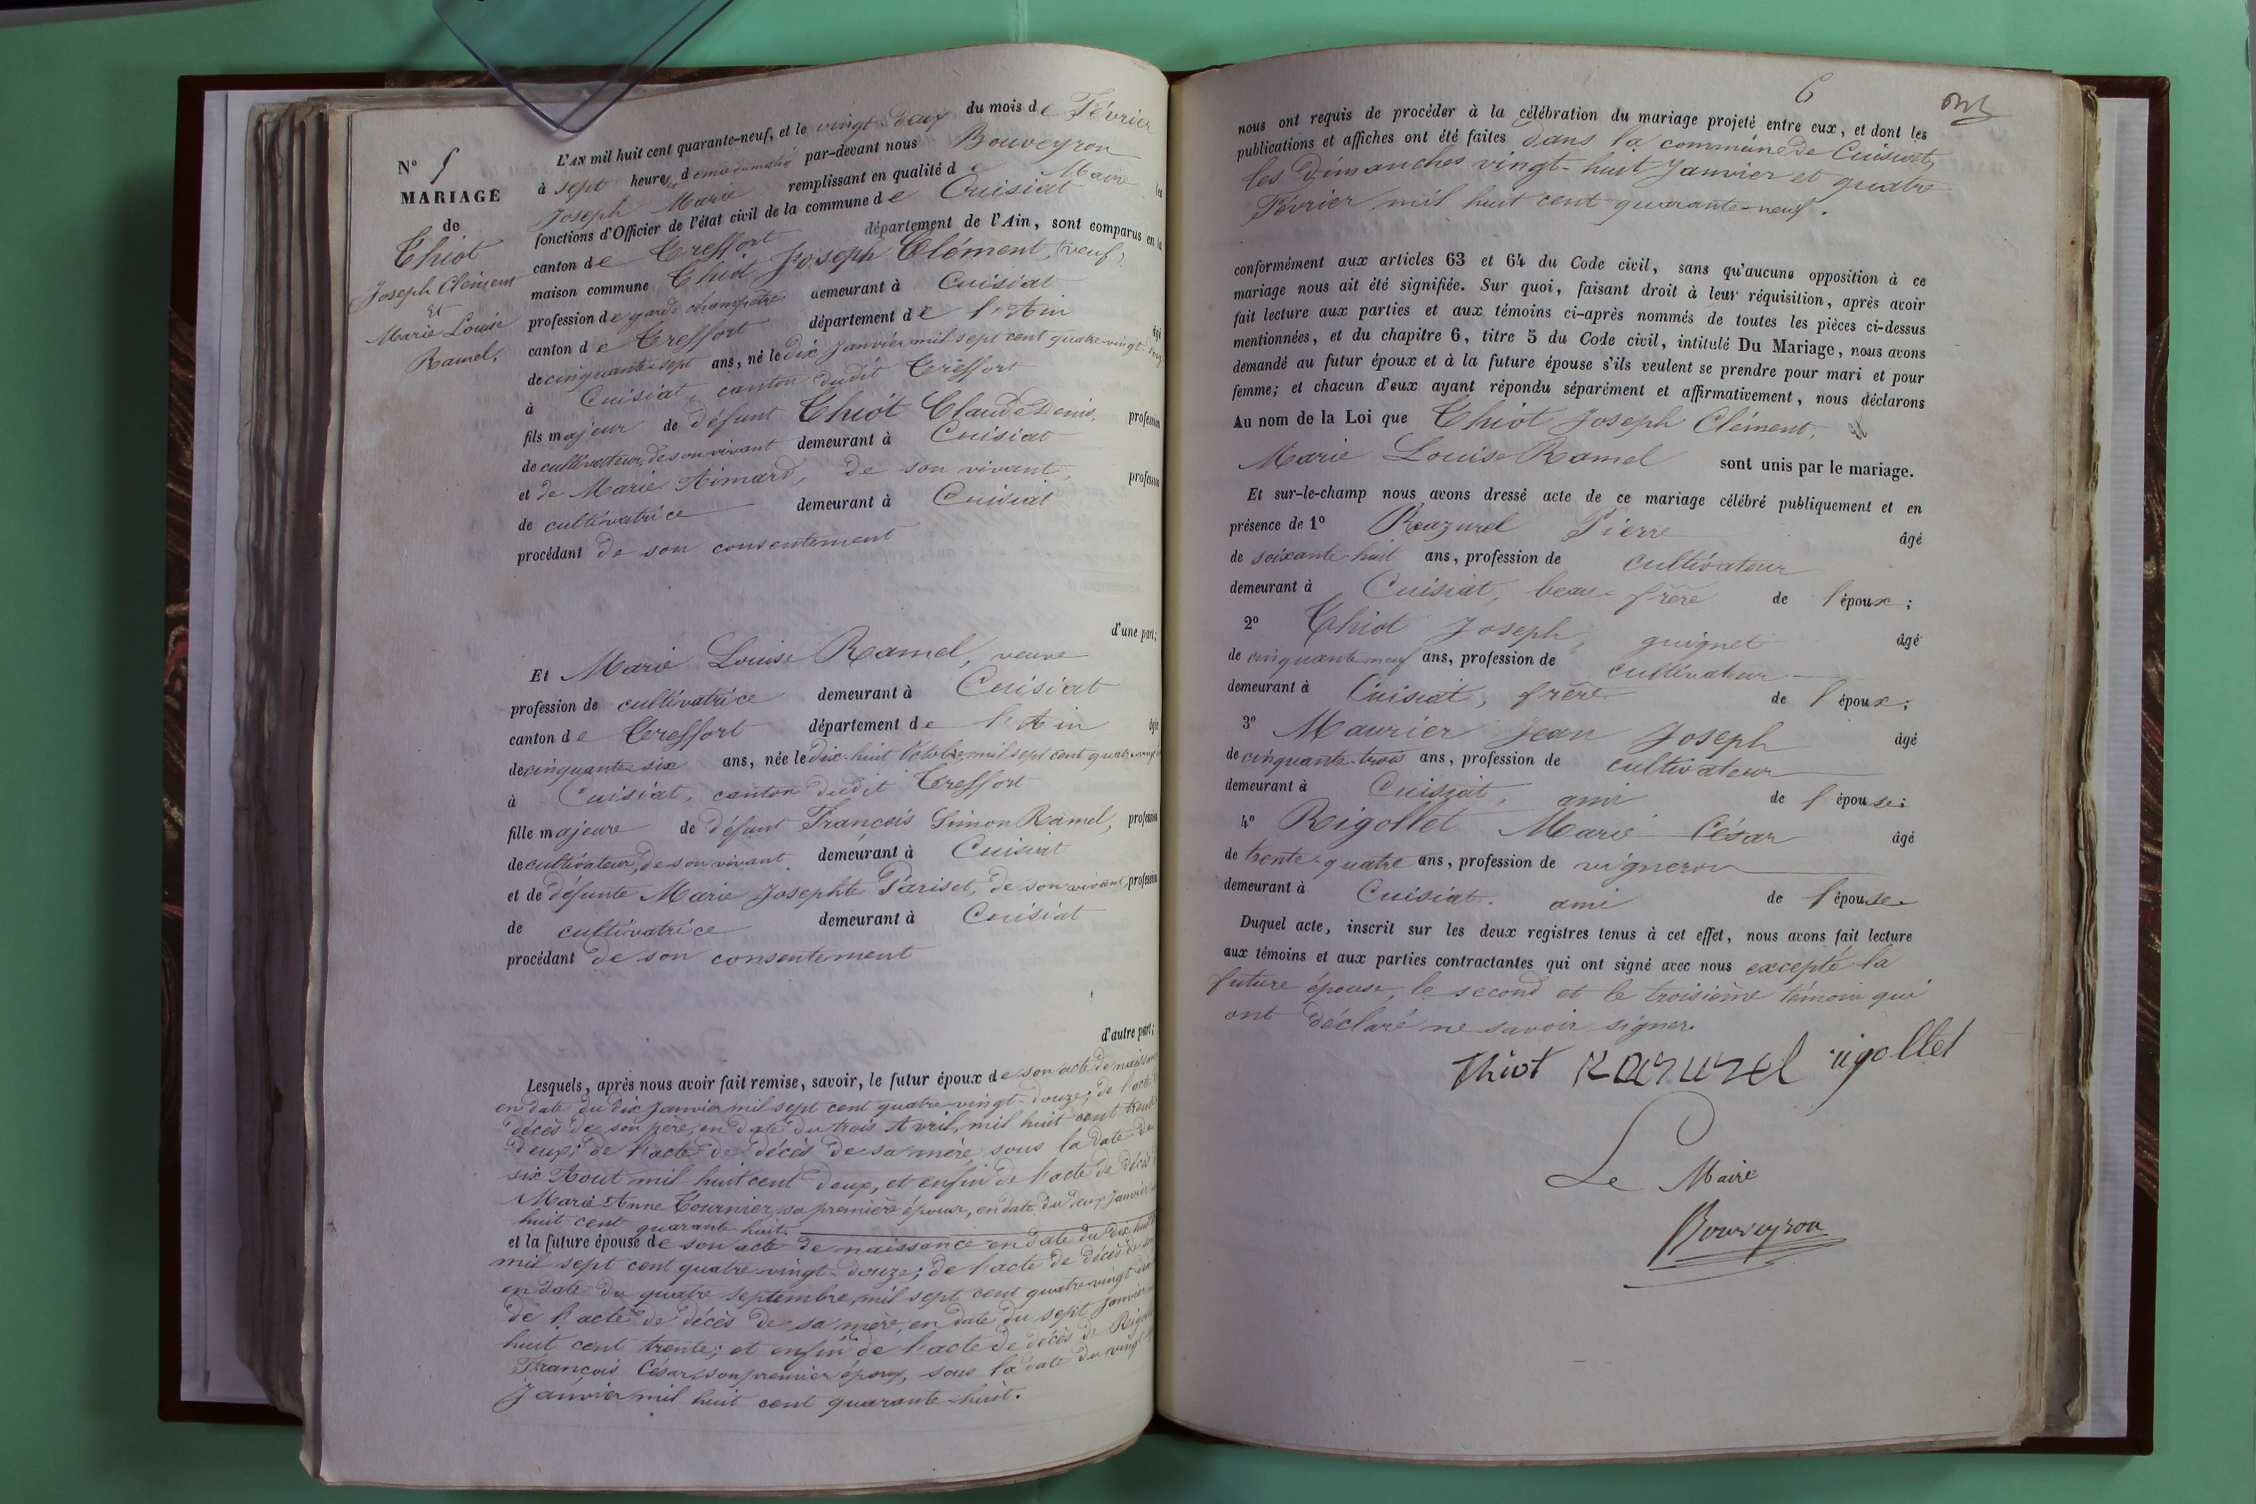 N° 5
MARIAGE
de
Thiot
Joseph Clément
et
Marie Louise
Ramel,
L'AN mil huit cent quarante-neuf, et le vingt-deux du mois de Février
à sept heures du matin par-devant nous Bouveyron
Joseph Marie remplissant en qualité de Maire les
fonctions d'Officier de l'état civil de la commune de Cuisiat
canton de Treffort département de l'Ain, sont comparus en la
maison commune Thiot Joseph Clément, (veuf)
profession de garde champêtre demeurant à Cuisiat
canton de Treffort département de l'Ain âgé
de cinquante-sept ans, né le dix Janvier mil sept cent quatre-vingt-
à Cuisiat, canton dudit Treffort
fils majeur de défunt Thiot Claude Denis, profession
de cultivateur, de son vivant demeurant à Cuisiat
et de Marie Aimard, de son vivant, profession
de cultivatrice demeurant à Cuisiat
procédant de son consentement
d'une part;
Et Marie Louise Ramel, veuve
profession de cultivatrice demeurant à Cuisiat
canton de Treffort département de l'Ain âgée
de cinquante-six ans, née le dix-huit Octobre mil sept cent quatre-vingt
à Cuisiat, canton dudit Treffort
fille majeure de défunt François Simon Ramel, profession
de cultivateur, de son vivant demeurant à Cuisiat
et de défunte Marie Josephte Pariset, de son vivant, profession
de cultivatrice demeurant à Cuisiat
procédant de son consentement
d'autre part;
Lesquels, après nous avoir fait remise, savoir, le futur époux de son acte de naissance
en date du dix Janvier mil sept cent quatre-vingt-douze; de l'acte de
décès de son père, en date du trois Avril, mil huit cent trente
deux; de l'acte de décès de sa mère sous la date du
six Aout mil huit cent deux, et enfin de l'acte de décès de
Marie Anne Tournier, sa première épouse, en date du deux Janvier
huit cent quarante-huit.
et la future épouse de son acte de naissance en date du dix-huit
mil sept cent quatre-vingt-douze; de l'acte de décès de son
en date du quatre septembre, mil sept cent quatre-vingt
de l'acte de décès de sa mère, en date du sept Janvier
huit cent trente; et enfin de l'acte de décès de
François César, son premier époux, sous la date du vingt
Janvier mil huit cent quarante-huit.
6
nous ont requis de procéder à la célébration du mariage projeté entre eux, et dont les
publications et affiches ont été faites dans la commune de Cuisiat,
les Dimanches vingt-huit Janvier et quatre
Février mil huit cent quarante-neuf.
conformément aux articles 63 et 64 du Code civil, sans qu'aucune opposition à ce
mariage nous ait été signifiée. Sur quoi, faisant droit à leur réquisition, après avoir
fait lecture aux parties et aux témoins ci-après nommés de toutes les pièces ci-dessus
mentionnées, et du chapitre 6, titre 5 du Code civil, intitulé Du Mariage, nous avons
demandé au futur époux et à la future épouse s'ils veulent se prendre pour mari et pour
femme; et chacun d'eux ayant répondu séparément et affirmativement, nous déclarons
Au nom de la Loi que Thiot Joseph Clément, et
Marie Louise Ramel sont unis par le mariage.
Et sur-le-champ nous avons dressé acte de ce mariage célébré publiquement et en
présence de 1° Razurel Pierre âgé
de soixante-huit ans, profession de cultivateur
demeurant à Cuisiat, beau-frère de l'époux;
2° Thiot Joseph, guignet âgé
de cinquante neuf ans, profession de cultivateur
demeurant à Cuisiat, frère de l'époux;
3° Maurier Jean Joseph âgé
de cinquante-trois ans, profession de cultivateur
demeurant à Cuisiat, ami de l'épouse;
4° Rigollet Marie César âgé
de trente-quatre ans, profession de vigneron
demeurant à Cuisiat. ami de l'épouse
Duquel acte, inscrit sur les deux registres tenus à cet effet, nous avons fait lecture
aux témoins et aux parties contractantes qui ont signé avec nous excepté la
future épouse, le second et le troisième témoin qui
ont déclaré ne savoir signer.
Thiot Razurel rigollet
Le Maire
Bouveyron